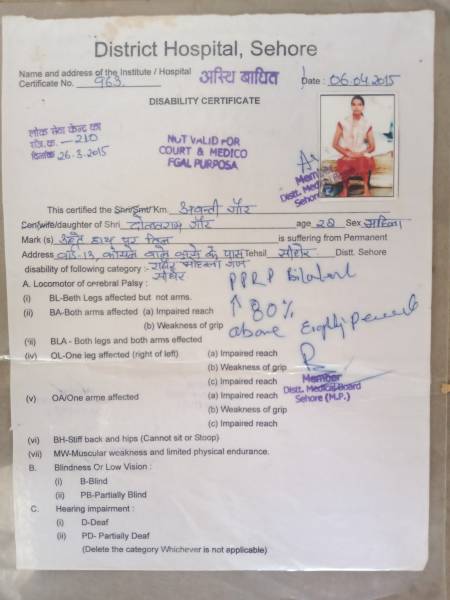 District Hospital, Sehore
Name and address of the Institute / Hospital
Certificate No. 963 अस्थि बाधित Date : 06.04.2015
DISABILITY CERTIFICATE
लोक सेवा केन्द्र का
रजि.क्र. — 210
दिनांक 26-3.2015
NOT VALID FOR
COURT & MEDICO
EGAL PURPOSA
Member
Distt. Med
Sehore
This certified the Shri/Smt/Km. अवन्ती गौर
Cen/wife/daughter of Shri दौलतराम गौर age 28 Sex महिला
Mark (s) हाथ पर तिल is suffering from Permanent
Address वार्ड-13, के पास Tehsil सीहोर Distt. Sehore
disability of following category :- सीहोर
A. Locomotor of cerebral Palsy : PPRP Bilateral
(i) BL-Beth Legs affected but not arms.
(ii) BA-Both arms affected (a) Impaired reach ↑ 80%
(b) Weakness of grip above Eighty Percent
(iii) BLA - Both legs and both arms effected
(iv) OL-One leg affected (right of left) (a) Impaired reach
(b) Weakness of grip
(c) Impaired reach
Member
Distt. Medical Board
Sehore (M.P.)
(v) OA/One arme affected (a) Impaired reach
(b) Weakness of grip
(c) Impaired reach
(vi) BH-Stiff back and hips (Cannot sit or Stoop)
(vii) MW-Muscular weakness and limited physical endurance.
B. Blindness Or Low Vision :
(i) B-Blind
(ii) PB-Partially Blind
C. Hearing impairment :
(i) D-Deaf
(ii) PD- Partially Deaf
(Delete the category Whichever is not applicable)